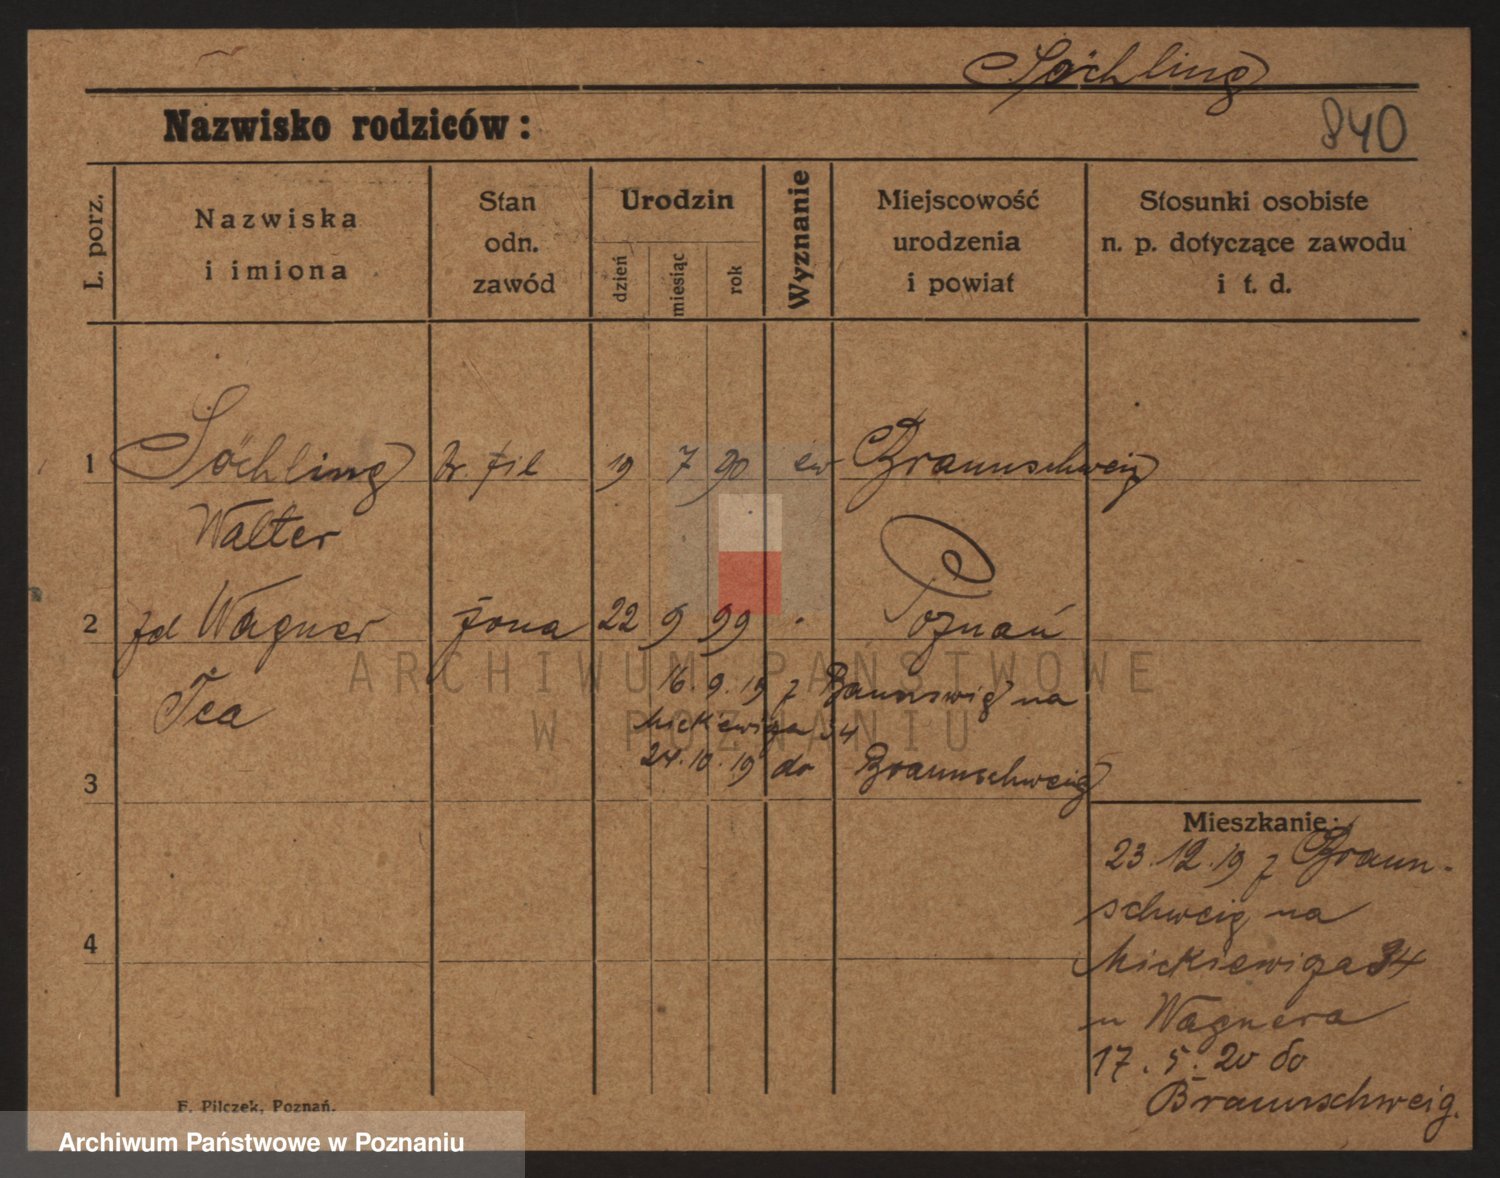 Söchling
Nazwisko rodziców:
840
L. porz.
Nazwiska
i imiona
Stan
odn.
zawód
Urodzin
dzień
miesiąc
rok
Wyznanie
Miejscowość
urodzenia
i powiat
Stosunki osobiste
n. p. dotyczące zawodu
i t. d.
1 Söchling Dr. fil 19 7 90 ew Braunschweig
Walter
2 zd Wagner żona 22 9 99 Poznań
Tea
16. 9. 19 z Braunswig na
Mickiewiza 34
3
24. 10. 19 do Braunschweig
Mieszkanie:
23. 12. 19 z Braun-
schweig na
4
Mickiewiza 34
u Wagnera
17. 5. 20 do
Braunschweig.
F. Pilczek, Poznań.
ARCHIWUM PAŃSTWOWE
W POZNANIU
Archiwum Państwowe w Poznaniu